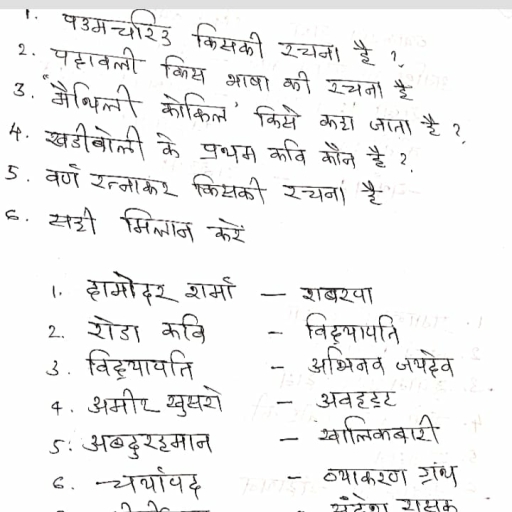 1. पउमचरिउ किसकी रचना है ?
2. पहावली किस भाषा की रचना है
3. "मैथिली कोकिल' किसे कहा जाता है ?
4. खडीबोली के प्रथम कवि कौन है ?
5. वर्ण रत्नाकर किसकी रचना है
6. सही मिलान करें
1. दामोदर शर्मा – शबरपा
2. रोडा कवि – विद्यापति
3. विद्यापति – अभिनव जयदेव
4. अमीर खुसरो – अवहट्ट
5: अब्दुरहमान – खालिकबारी
6. चर्यापद – व्याकरण ग्रंथ
संदेश रासक